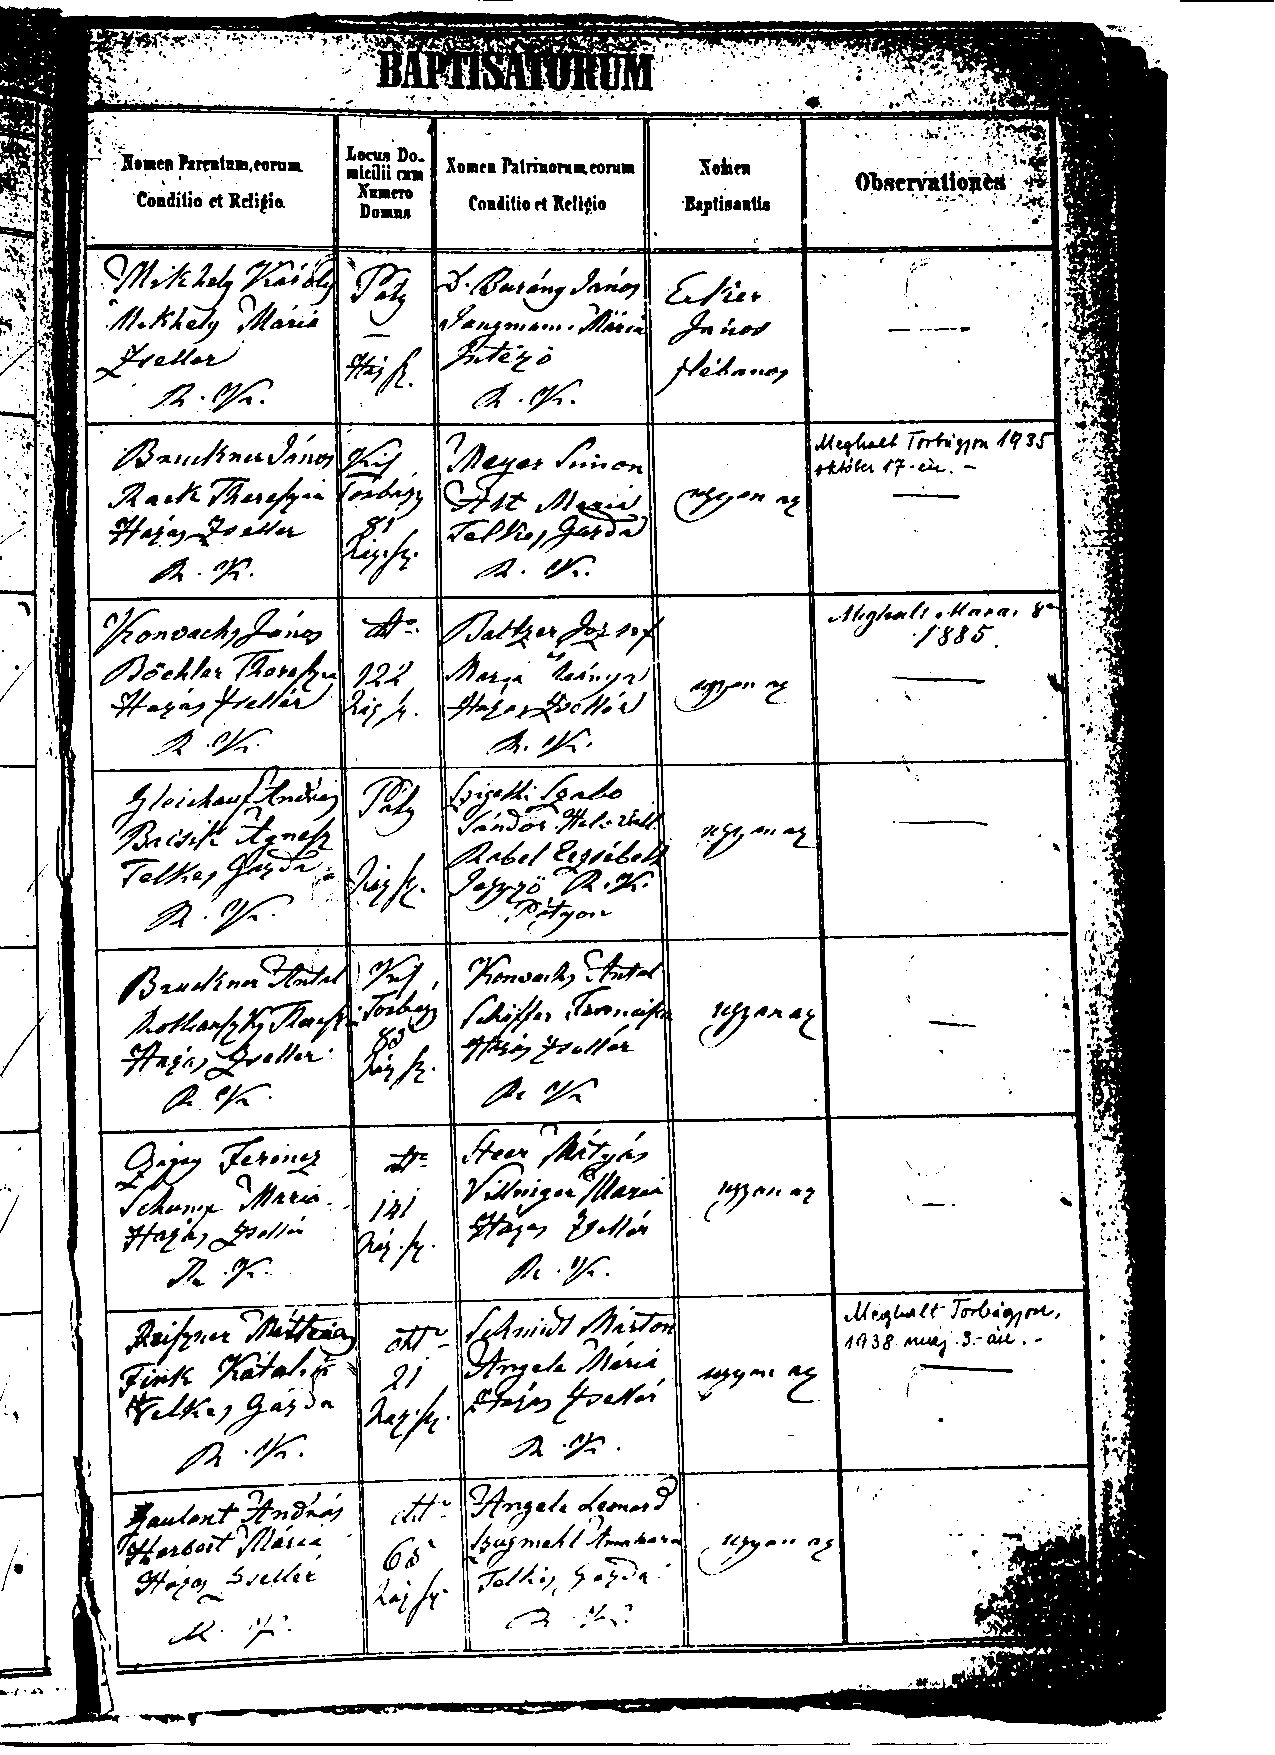 BAPTISATORUM
Nomen Parentum, eorum
Conditio et Religio.
Locus Do-
micilii cum
Numero
Domus
Nomen Patrinorum, eorum
Conditio et Religio
Nomen
Baptisantis
Observationes
Mikhely Károly
Mikhely Mária
Zsellér
R. K.
Páty
Ház sz.
Barány János
Jungmann Mária
Intéző
R. K.
János
plébános
Bruckner János
Rack Thereszia
Házas Zsellér
R. K.
Kis
Torbágy
81
Ház sz.
Mayer Simon
Alt Maria
Telkes Gazda
R. K.
ugyan az
Meghalt Torbágyon 1935
október 17-én. -
Konvachy János
Böchler Thereszia
Házas Zsellér
R. K.
dtto
122
Ház sz.
Baltzer József
Házas Zsellér
R. K.
ugyan az
1885.
Gleichauf András
Agnesz
Telkes Gazda
R. K.
Páty
Ház sz.
Szigethi Szabo
Sándor
Rabel Erzsébeth
Jegyző R. K.
Pátyon
ugyan az
Bruckner Antal
Házas Zsellér
R. K.
Kis
Torbágy
Ház sz.
Konvachy Antal
Schiffer Franciska
Házas Zsellér
R. K.
ugyan az
Ferencz
Maria
Házas Zsellér
R. K.
dtto
141
Ház sz.
Steer Mátyás
Villniger Maria
Házas Zsellér
R. K.
ugyan az
Fink Katalin
Telkes Gazda
R. K.
dtto
21
Ház sz.
Schmidt Márton
Angele Mária
Házas Zsellér
R. K.
ugyan az
Meghalt Torbágyon,
1938 máj. 3.-án. -
András
Herbert Mária
Házas Zsellér
R. K.
dtto
Ház sz.
Angele Leonard
Telkes Gazda
R. K.
ugyan az